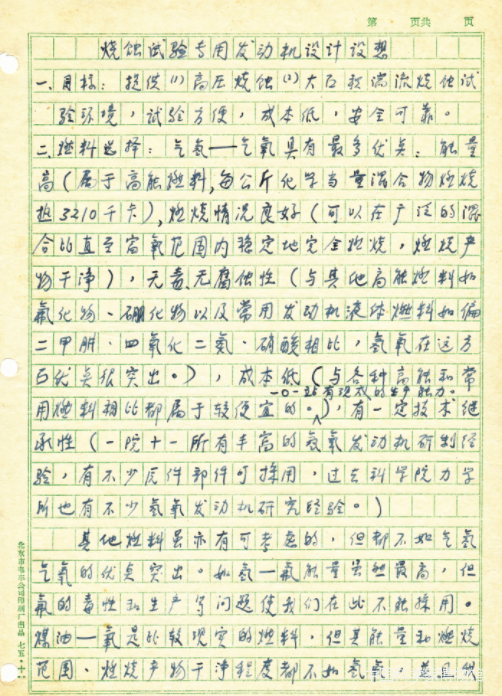 第 页共 页
烧蚀试验专用发动机设计设想
一、目标：提供(1)高压烧蚀(2)大面积湍流烧蚀试
验环境，试验方便，成本低，安全可靠。
二、燃料选择：气氢—气氧具有最多优点：能量
高(属于高能燃料,每公斤化学当量混合物燃烧
超3210千卡),燃烧情况良好(可以在广泛的混
合比直至富氧范围内稳定地完全燃烧，燃烧产
物干净)，无毒、无腐蚀性(与其他高能燃料如
氟化物、硼化物以及常用发动机液体燃料如偏
二甲肼、四氧化二氮、硝酸相比，氢氧在这方
面优点很突出。)，成本低(与各种高能和常
一〇一站有现成的生产能力。
用燃料相比都属于较便宜的。)，有一定技术继
承性(一院十一所有丰富的氢氧发动机研制经
验，有不少元件部件可採用，过去科学院力学
所也有不少氢氧发动机研究经验。)
其他燃料虽亦有可考虑的，但都不如气氢
气氧的优点突出。如氢—氟能量虽然最高，但
氟的毒性和生产等问题使我们在此不能採用。
煤油—氧是比较现实的燃料，但其能量和燃烧
范围、燃烧产物干净程度都不如氢氧，
北京市电车公司印刷厂出品 七五·十